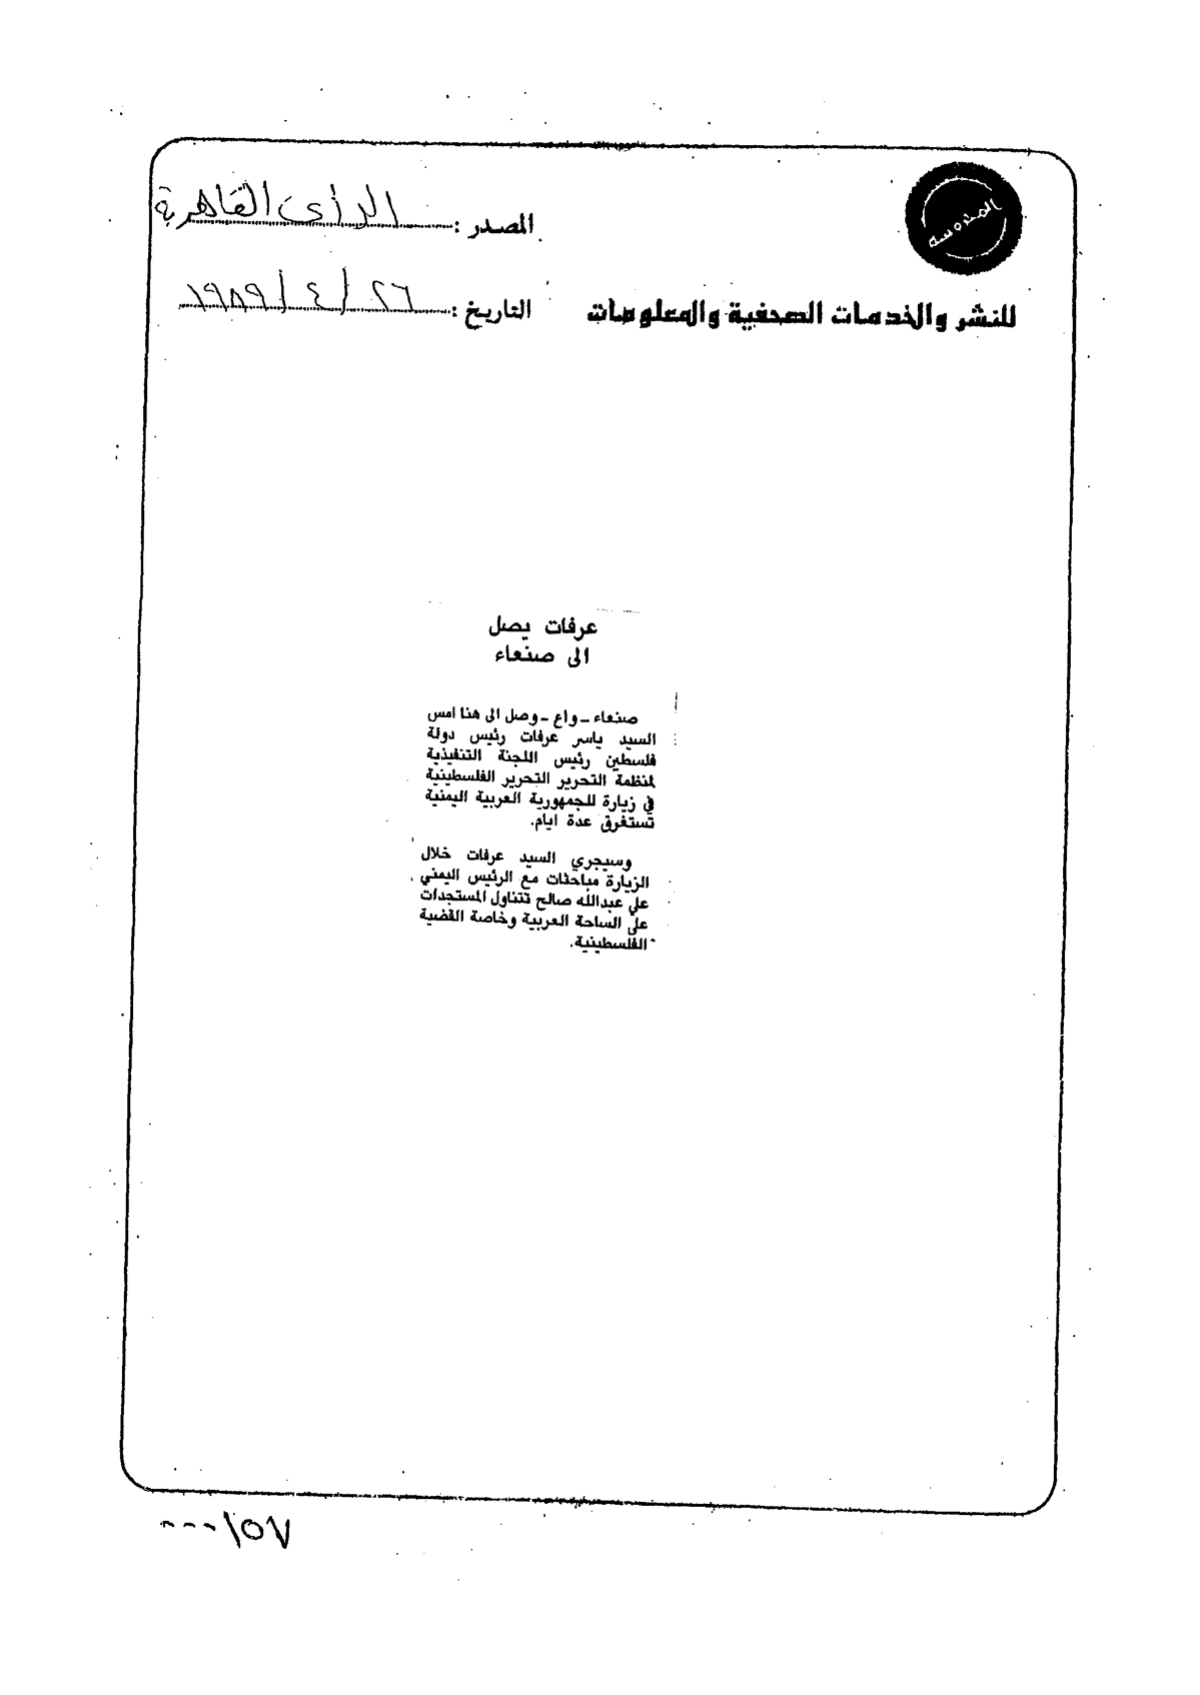 المصدر : الرأى القاهرية
المحروسة
للنشر والخدمات الصحفية والمعلومات
التاريخ : ٢٦ / ٤ / ١٩٨٩
عرفات يصل
الى صنعاء
صنعاء ـ واع ـ وصل الى هنا امس
السيد ياسر عرفات رئيس دولة
فلسطين رئيس اللجنة التنفيذية
لمنظمة التحرير التحرير الفلسطينية
في زيارة للجمهورية العربية اليمنية
تستغرق عدة ايام.
وسيجري السيد عرفات خلال
الزيارة مباحثات مع الرئيس اليمني
علي عبدالله صالح تتناول المستجدات
على الساحة العربية وخاصة القضية
الفلسطينية.